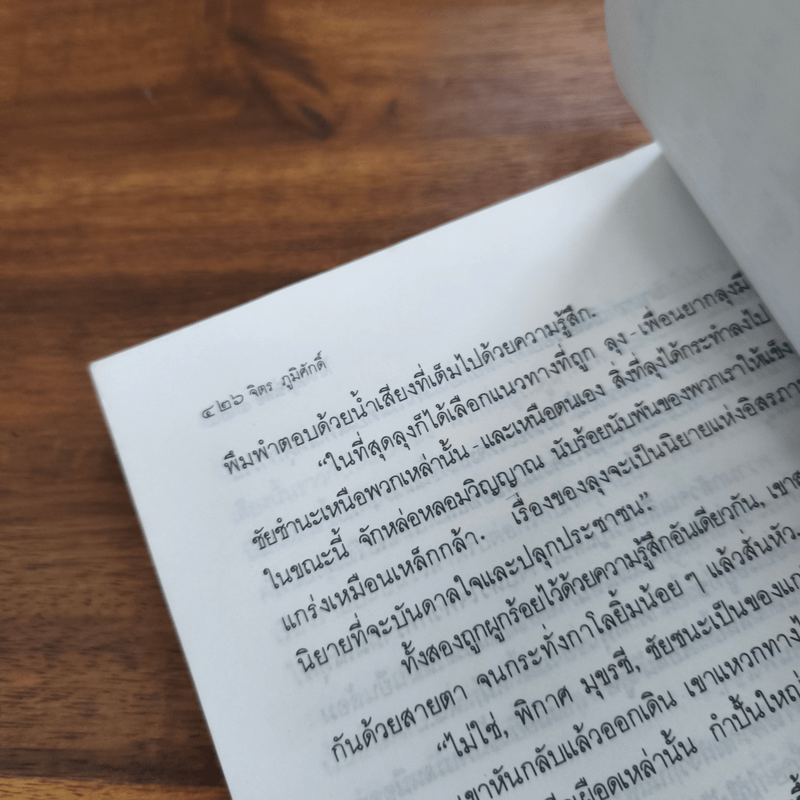 ๔๒๖ จิตร ภูมิศักดิ์
พึมพำตอบด้วยน้ำเสียงที่เต็มไปด้วยความรู้สึก.
“ในที่สุดลุงก็ได้เลือกแนวทางที่ถูก ลุง - เพื่อนยากลุงมี
ชัยชำนะเหนือพวกเหล่านั้น - และเหนือตนเอง สิ่งที่ลุงได้กระทำลงไป
ในขณะนี้ จักหล่อหลอมวิญญาณ นับร้อยนับพันของพวกเราให้แข็ง
แกร่งเหมือนเหล็กกล้า. เรื่องของลุงจะเป็นนิยายแห่งอิสรภาพ
นิยายที่จะบันดาลใจและปลุกประชาชน”.
ทั้งสองถูกผูกร้อยไว้ด้วยความรู้สึกอันเดียวกัน, เขา
กันด้วยสายตา จนกระทั่งกาโลยิ้มน้อย ๆ แล้วสั่นหัว.
“ไม่ใช่, พิกาศ มุขรชี, ชัยชนะเป็นของแก
เขาหันกลับแล้วออกเดิน เขาแหวกทางไ
เผือดเหล่านั้น กำปั้นใหญ่